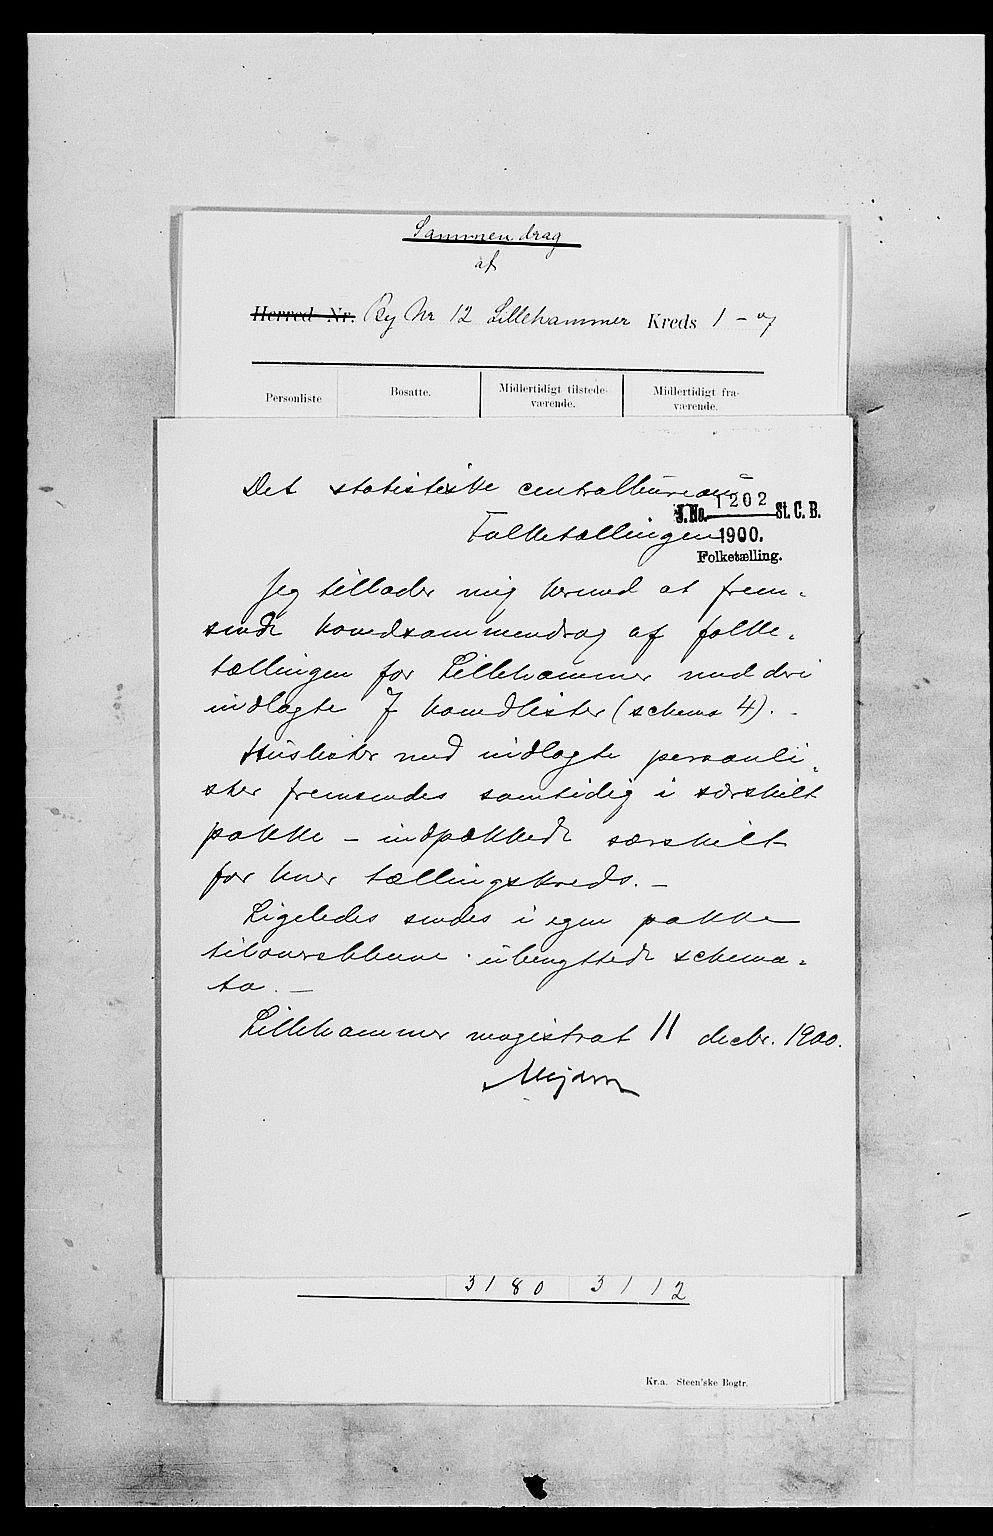 Sammendrag
af
Herred Nr. By Nr 12 Lillehammer Kreds 1 - 7
Personliste Bosatte. Midlertidigt tilstede-
værende. Midlertidigt fra-
værende.
Det statistiske centralbureau
J. No. 1202 St. C. B.
Folketællingen 1900.
Folketælling.
Jeg tillader mig herved at frem-
sende hovedsammendrag af folke-
tællingen for Lillehammer med deri
indlagte 7 hovedlister (schema 4). -
Huslister med indlagte personli-
ster fremsendes samtidig i særskilt
pakke - indpakkede særskilt
for hver tællingskreds. -
Ligeledes sendes i egen pakke
tiloversblevne ubenyttede schema-
ta. -
Lillehammer magistrat 11 decbr. 1900.
3180 3112
Kr.a. Steen'ske Bogtr.